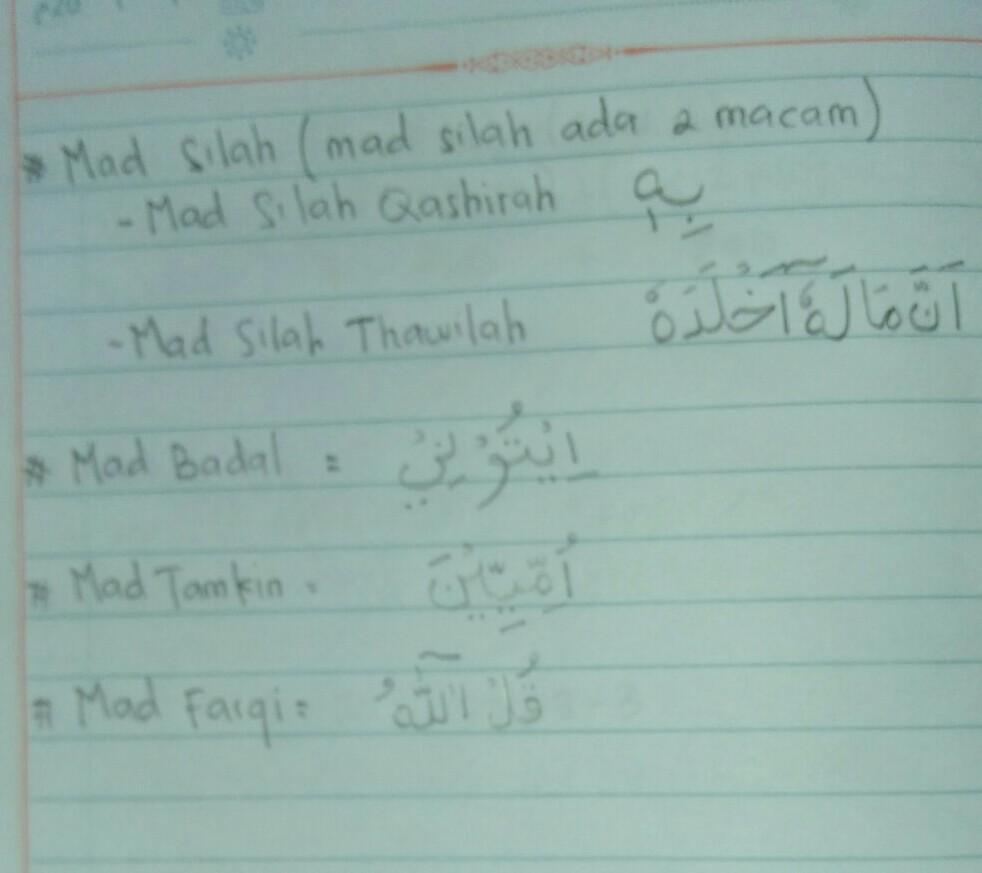 * Mad Silah (mad silah ada 2 macam)
- Mad Silah Qashirah بِهٖ
- Mad Silah Thawilah اَنَّ مَالَهٗٓ اَخْلَدَهٗ
* Mad Badal = اِيْتُوْنِيْ
* Mad Tamkin = اُمِّيّٖيْنَ
* Mad Farqi = قُلْ آللّٰهُ